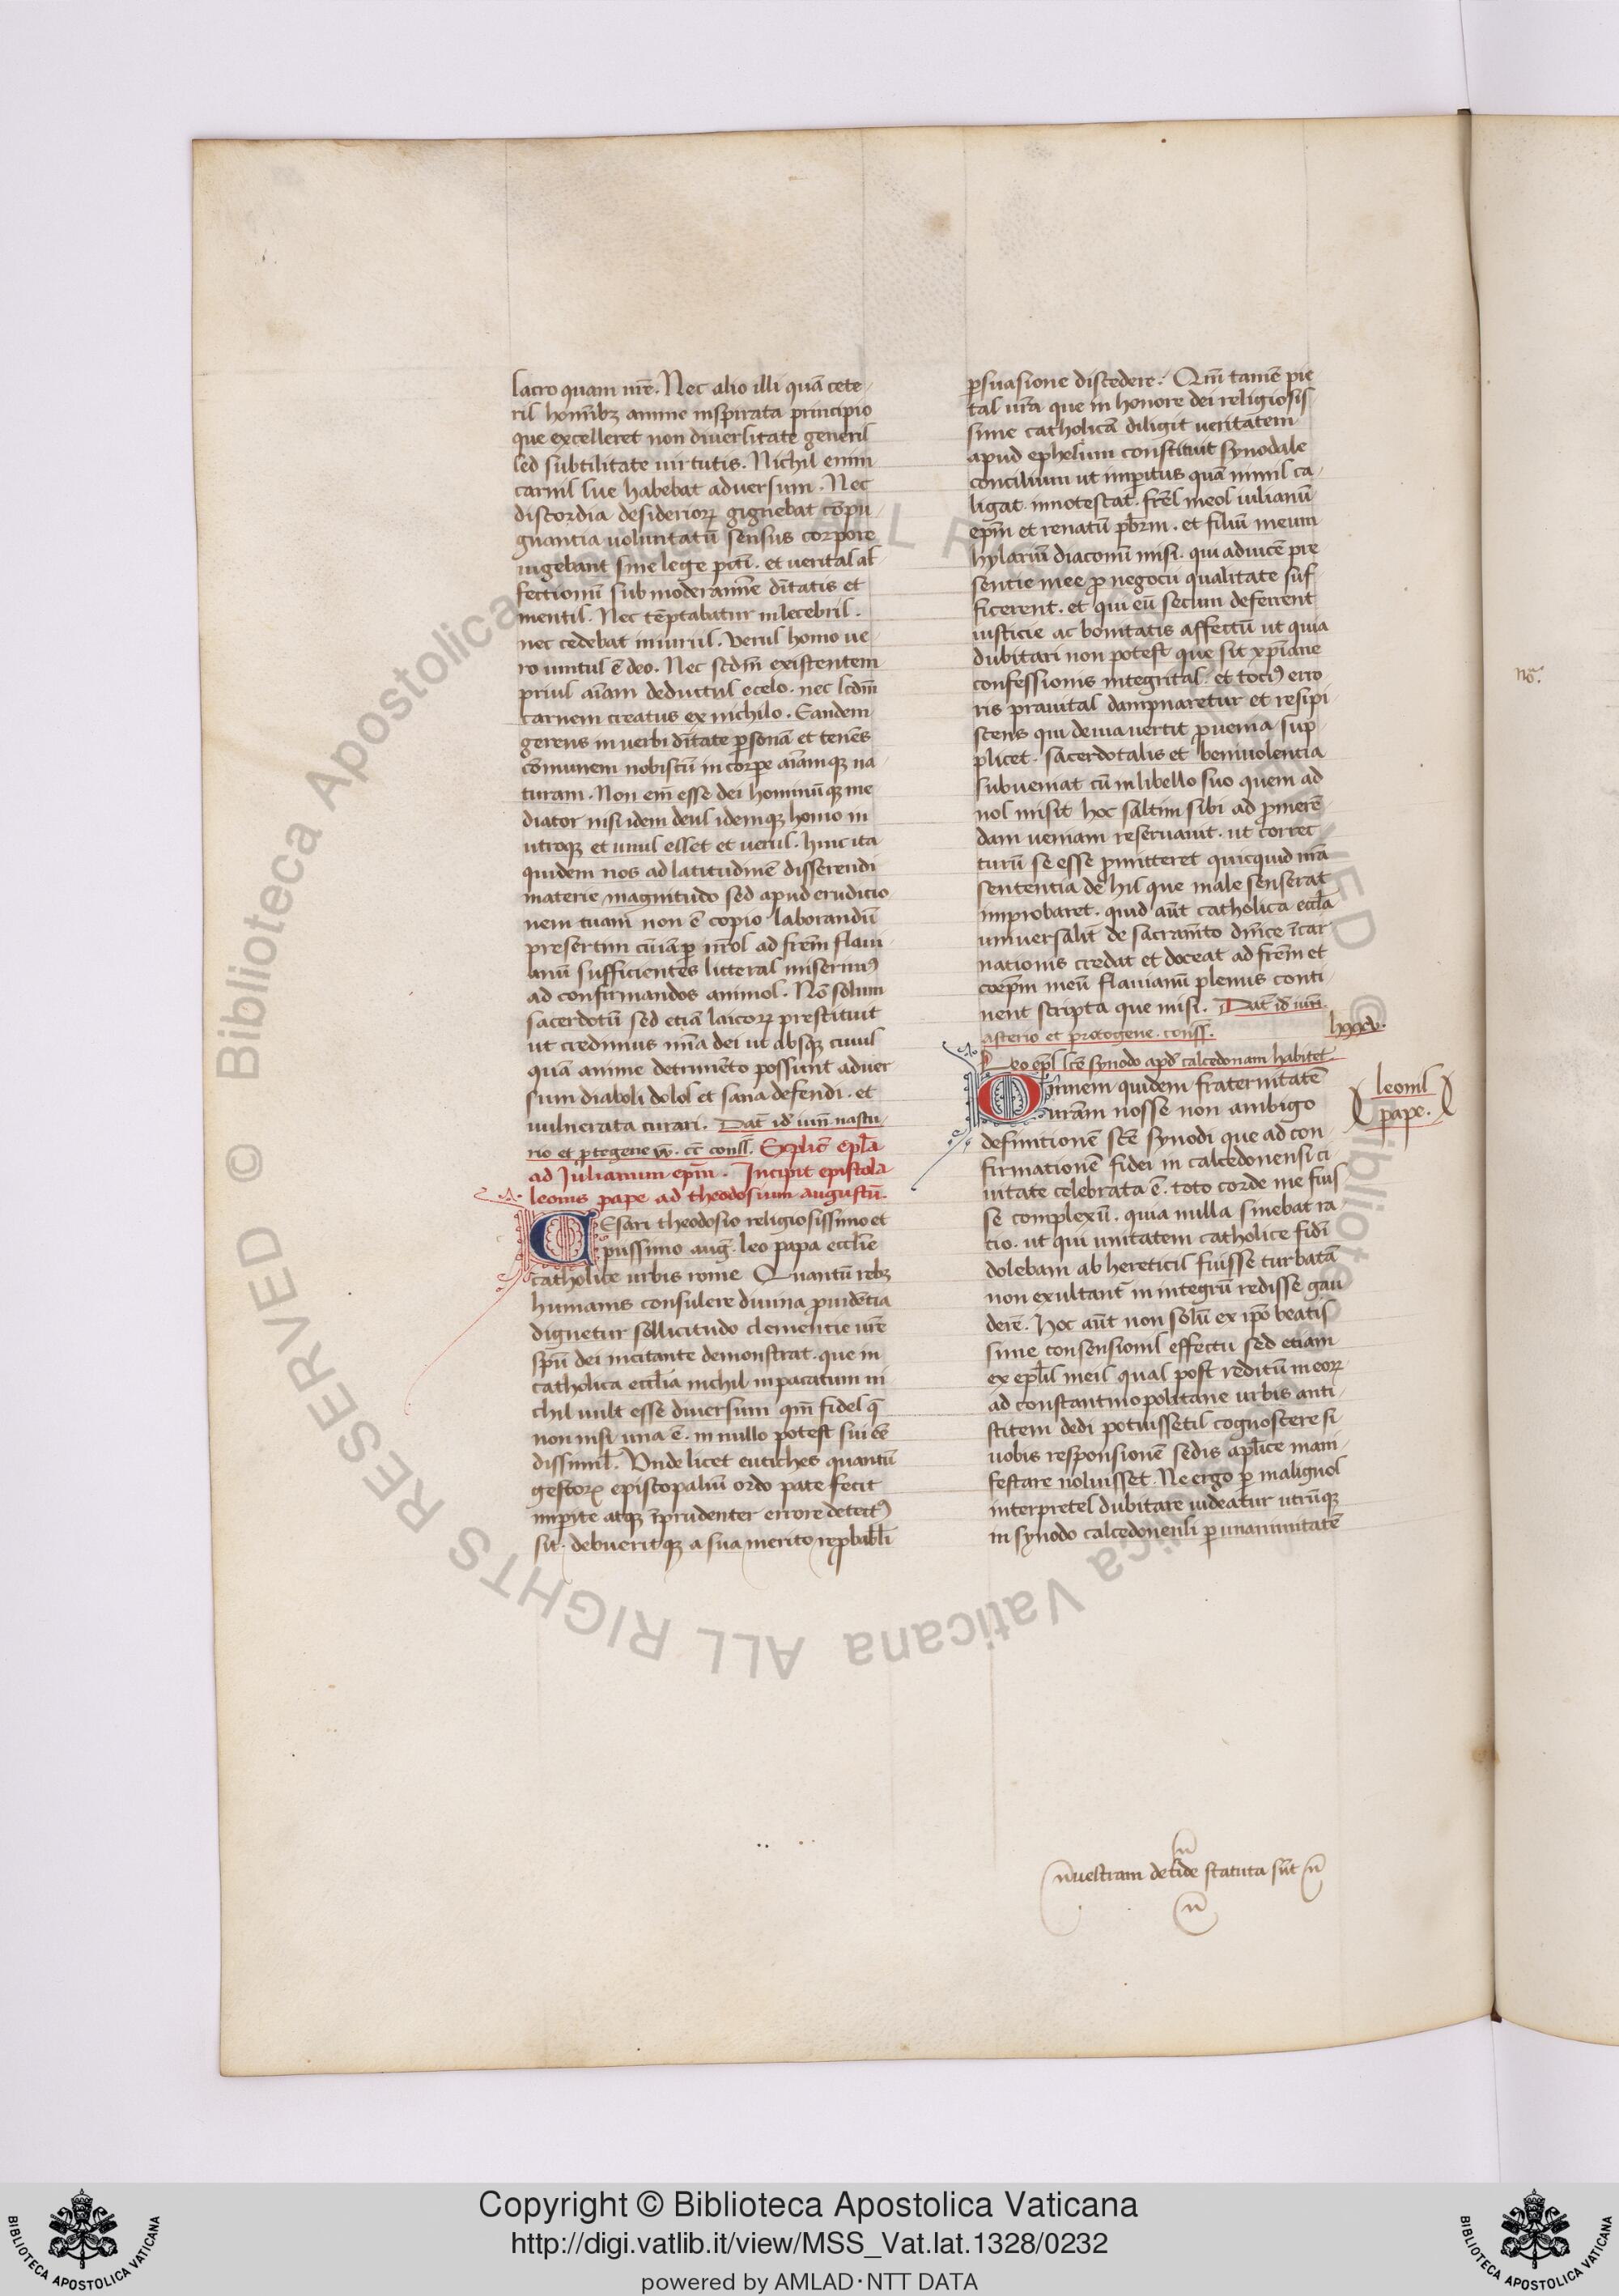 lacro quam nr̄e. Nec alio illi quā cete
ris homĩbʒ anime inspirata principio
que excelleret non diversitate generis
sed subtilitate virtutis. Nichil enim
carnis sue habebat adversum. Nec
discordia desideriorꝝ gignebat cōpu
gnantia voluntatū sensus corporei
vigebant sine lege pcti. et veritas af
fectionū sub moderamīe dītatis et
mentis. Nec tēptabatur inlecebris.
nec cedebat iniuriis. Verus homo ve
ro unitus ē deo. Nec scdm̄ existentem
prius aīam deductus e celo. nec scdm̄
carnem creatus ex nichilo. Eandem
gerens in verbi dītate ꝑsonā et tenēs
cōmunem nobiscū in corpe aīamqʒ na
turam. Non em̄ esse dei hominūqʒ me
diator nisi idem deus idemqʒ homo in
utroqʒ et unus esset et verus. hinc ita
quidem nos ad latitudinē disserendi
materie magnitudo sed apud erudicio
nem tuam non ē copio laborandū
presertim cū iā ꝑ nr̄os ad frēm flavi
anū sufficientes litteras miserimꝰ
ad confirmandos animos. Nō solum
sacerdotū sed etiā laicorꝝ prestituit
ut credimus mīa dei ut absqʒ cuius
quā anime detrimēto possunt adver
sum diaboli dolos et sana defendi. et
vulnerata curari. Dat̄ id iun̄ nastu
rio et ꝓtogene vv. cc̄ conss̄. Explic̄ epl̄a
ad Julianum epm̄. Incipit epistola
leonis pape ad theodosium augustū.
CEsari theodosio religiosissimo et
piissimo auḡ. leo papa eccl̄ie
catholice urbis rome Quantū rebʒ
humanis consulere divina ꝓvidētia
dignetur sollicitudo clementie vr̄e
spū dei incitante demonstrat. que in
catholica eccl̄ia nichil inpacatum ni
chil vult esse diversum qm̄ fides q̄
non nisi una ē. in nullo potest sui ēē
dissimil̄. Unde licet eutiches quantū
gestorꝝ episcopaliū ordo patefecit
imperite atqʒ īprudenter errore detectꝰ
sit. debueritqʒ a sua merito rep̄babl̄i
ꝑsuasione discedere. Qm̄ tamē pie
tas vr̄a que in honore dei religiosis
sime catholicā diligit veritatem
apud ephesum constituit synodale
concilium ut impitus quā nimis ca
ligat innotescat. fr̄es meos iulianū
epm̄ et renatū pbrm̄. et filiū meum
hylariū diaconū misi. qui ad vicē pre
sentie mee ꝓ negocii qualitate suf
ficerent. et qui eū secum deferrent
iusticie ac bonitatis affectū ut quia
dubitari non potest que sit xp̄iane
confessionis integritas. et tociꝰ erro
ris pravitas dampnaretur et resipi
scens qui devia vertit ꝓ venia sup
plicet. sacerdotalis et benivolentia
subveniat cū in libello suo quem ad
nos misit hoc saltim sibi ad ꝓmerē
dam veniam reservavit. ut correc
turū se esse ꝓmitteret quicquid nr̄a
sententia de his que male senserat
improbaret. quid aūt catholica eccl̄a
universalit̄ de sacram̄to dn̄ice īcar
nationis credat et doceat ad frēm et
coepm̄ meū flavianū plenius conti
nent scripta que misi. Dat̄ id iun̄
asterio et protogene. conss̄.
Leo epl̄ sc̄e synodo apd̄ calcedonam habitet
Omnem quidem fraternitatē
vr̄am nosse non ambigo
definitionē sc̄e synodi que ad con
firmationē fidei in calcedonensi ci
vitate celebrata ē. toto corde me fuis
se complexū. quia nulla sinebat ra
cio. ut qui unitatem catholice fidei
dolebam ab hereticis fuisse turbatā
non exultant̄ in integrū redisse gau
derē. Hoc aūt non solū ex ipō beatis
sime consensionis effectu sed etiam
ex epl̄is meis quas post reditū meorꝝ
ad constantinopolitane urbis anti
stitem dedi potuissetis cognoscere si
vobis responsionē sedis apl̄ice mani
festare voluisset. Ne ergo ꝑ malignos
interpretes dubitare videatur utrūqʒ
in synodo calcedonensi ꝑ unanimitatē
leonis
pape.
vestram de fide statuta sūt
Copyright © Biblioteca Apostolica Vaticana
http://digi.vatlib.it/view/MSS_Vat.lat.1328/0232
powered by AMLAD·NTT DATA
BIBLIOTECA APOSTOLICA VATICANA
BIBLIOTECA APOSTOLICA VATICANA
© Biblioteca Apostolica Vaticana ALL RIGHTS RESERVED